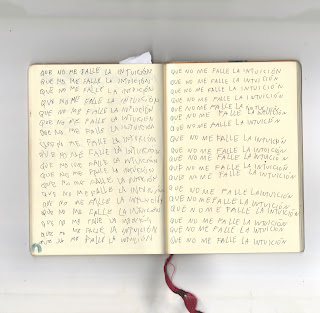 QUE NO ME FALLE LA INTUICIÓN
QUE NO ME FALLE LA INTUICIÓN
QUE NO ME FALLE LA INTUICIÓN
QUE NO ME FALLE LA INTUICIÓN
QUE NO ME FALLE LA INTUICIÓN
QUE NO ME FALLE LA INTUICIÓN
QUE NO ME FALLE LA INTUICIÓN
QUE NO ME FALLE LA INTUICIÓN
QUE NO ME FALLE LA INTUICIÓN
QUE NO ME FALLE LA INTUICIÓN
QUE NO ME FALLE LA INTUICIÓN
QUE NO ME FALLE LA INTUICIÓN
QUE NO ME FALLE LA INTUICIÓN
QUE NO ME FALLE LA INTUICIÓN
QUE NO ME FALLE LA INTUICIÓN
QUE NO ME FALLE LA INTUICIÓN
QUE NO ME FALLE LA INTUICIÓN
QUE NO ME FALLE LA INTUICIÓN
QUE NO ME FALLE LA INTUICIÓN
QUE NO ME FALLE LA INTUICIÓN
QUE NO ME FALLE LA INTUICIÓN
QUE NO ME FALLE LA INTUICIÓN
QUE NO ME FALLE LA INTUICIÓN
QUE NO ME FALLE LA INTUICIÓN
QUE NO ME FALLE LA INTUICIÓN
QUE NO ME FALLE LA INTUICIÓN
QUE NO ME FALLE LA INTUICIÓN
QUE NO ME FALLE LA INTUICIÓN
QUE NO ME FALLE LA INTUICIÓN
QUE NO ME FALLE LA INTUICIÓN
QUE NO ME FALLE LA INTUICIÓN
QUE NO ME FALLE LA INTUICIÓN
QUE NO ME FALLE LA INTUICIÓN
QUE NO ME FALLE LA INTUICIÓN
QUE NO ME FALLE LA INTUICIÓN
QUE NO ME FALLE LA INTUICIÓN